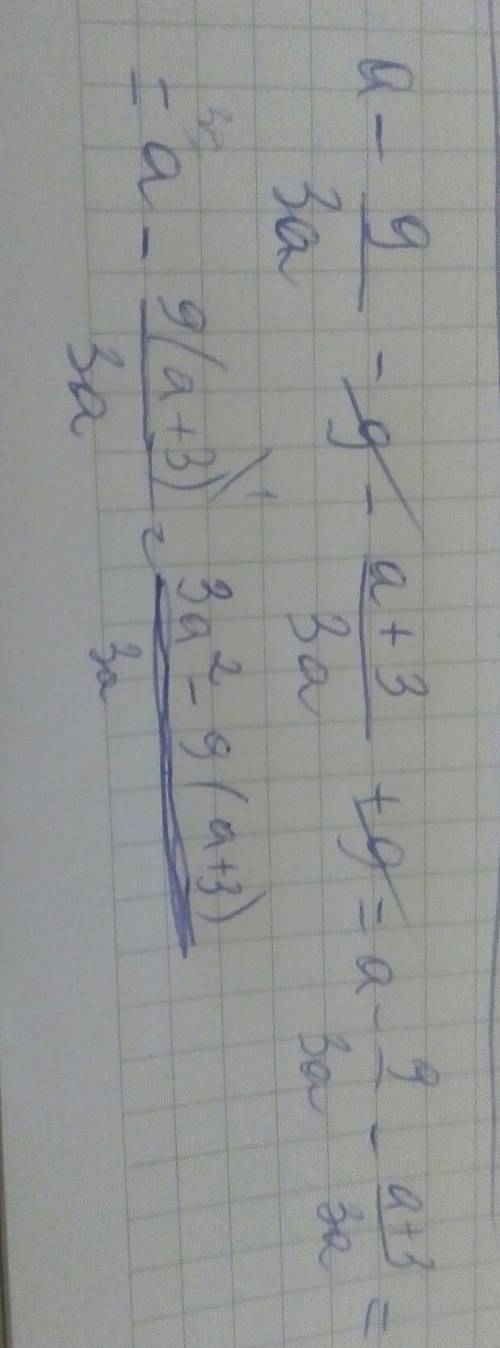 a - 9/3a - 9 - a+3/3a + 9 = a - 9/3a - a+3/3a =
= a^{3a} - 9(a+3)\1/3a = 3a² - 9(a+3)/3a